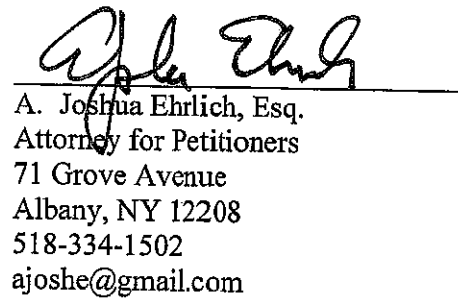 AJosh Ehrlich
A. Joshua Ehrlich, Esq.
Attorney for Petitioners
71 Grove Avenue
Albany, NY 12208
518-334-1502
ajoshe@gmail.com